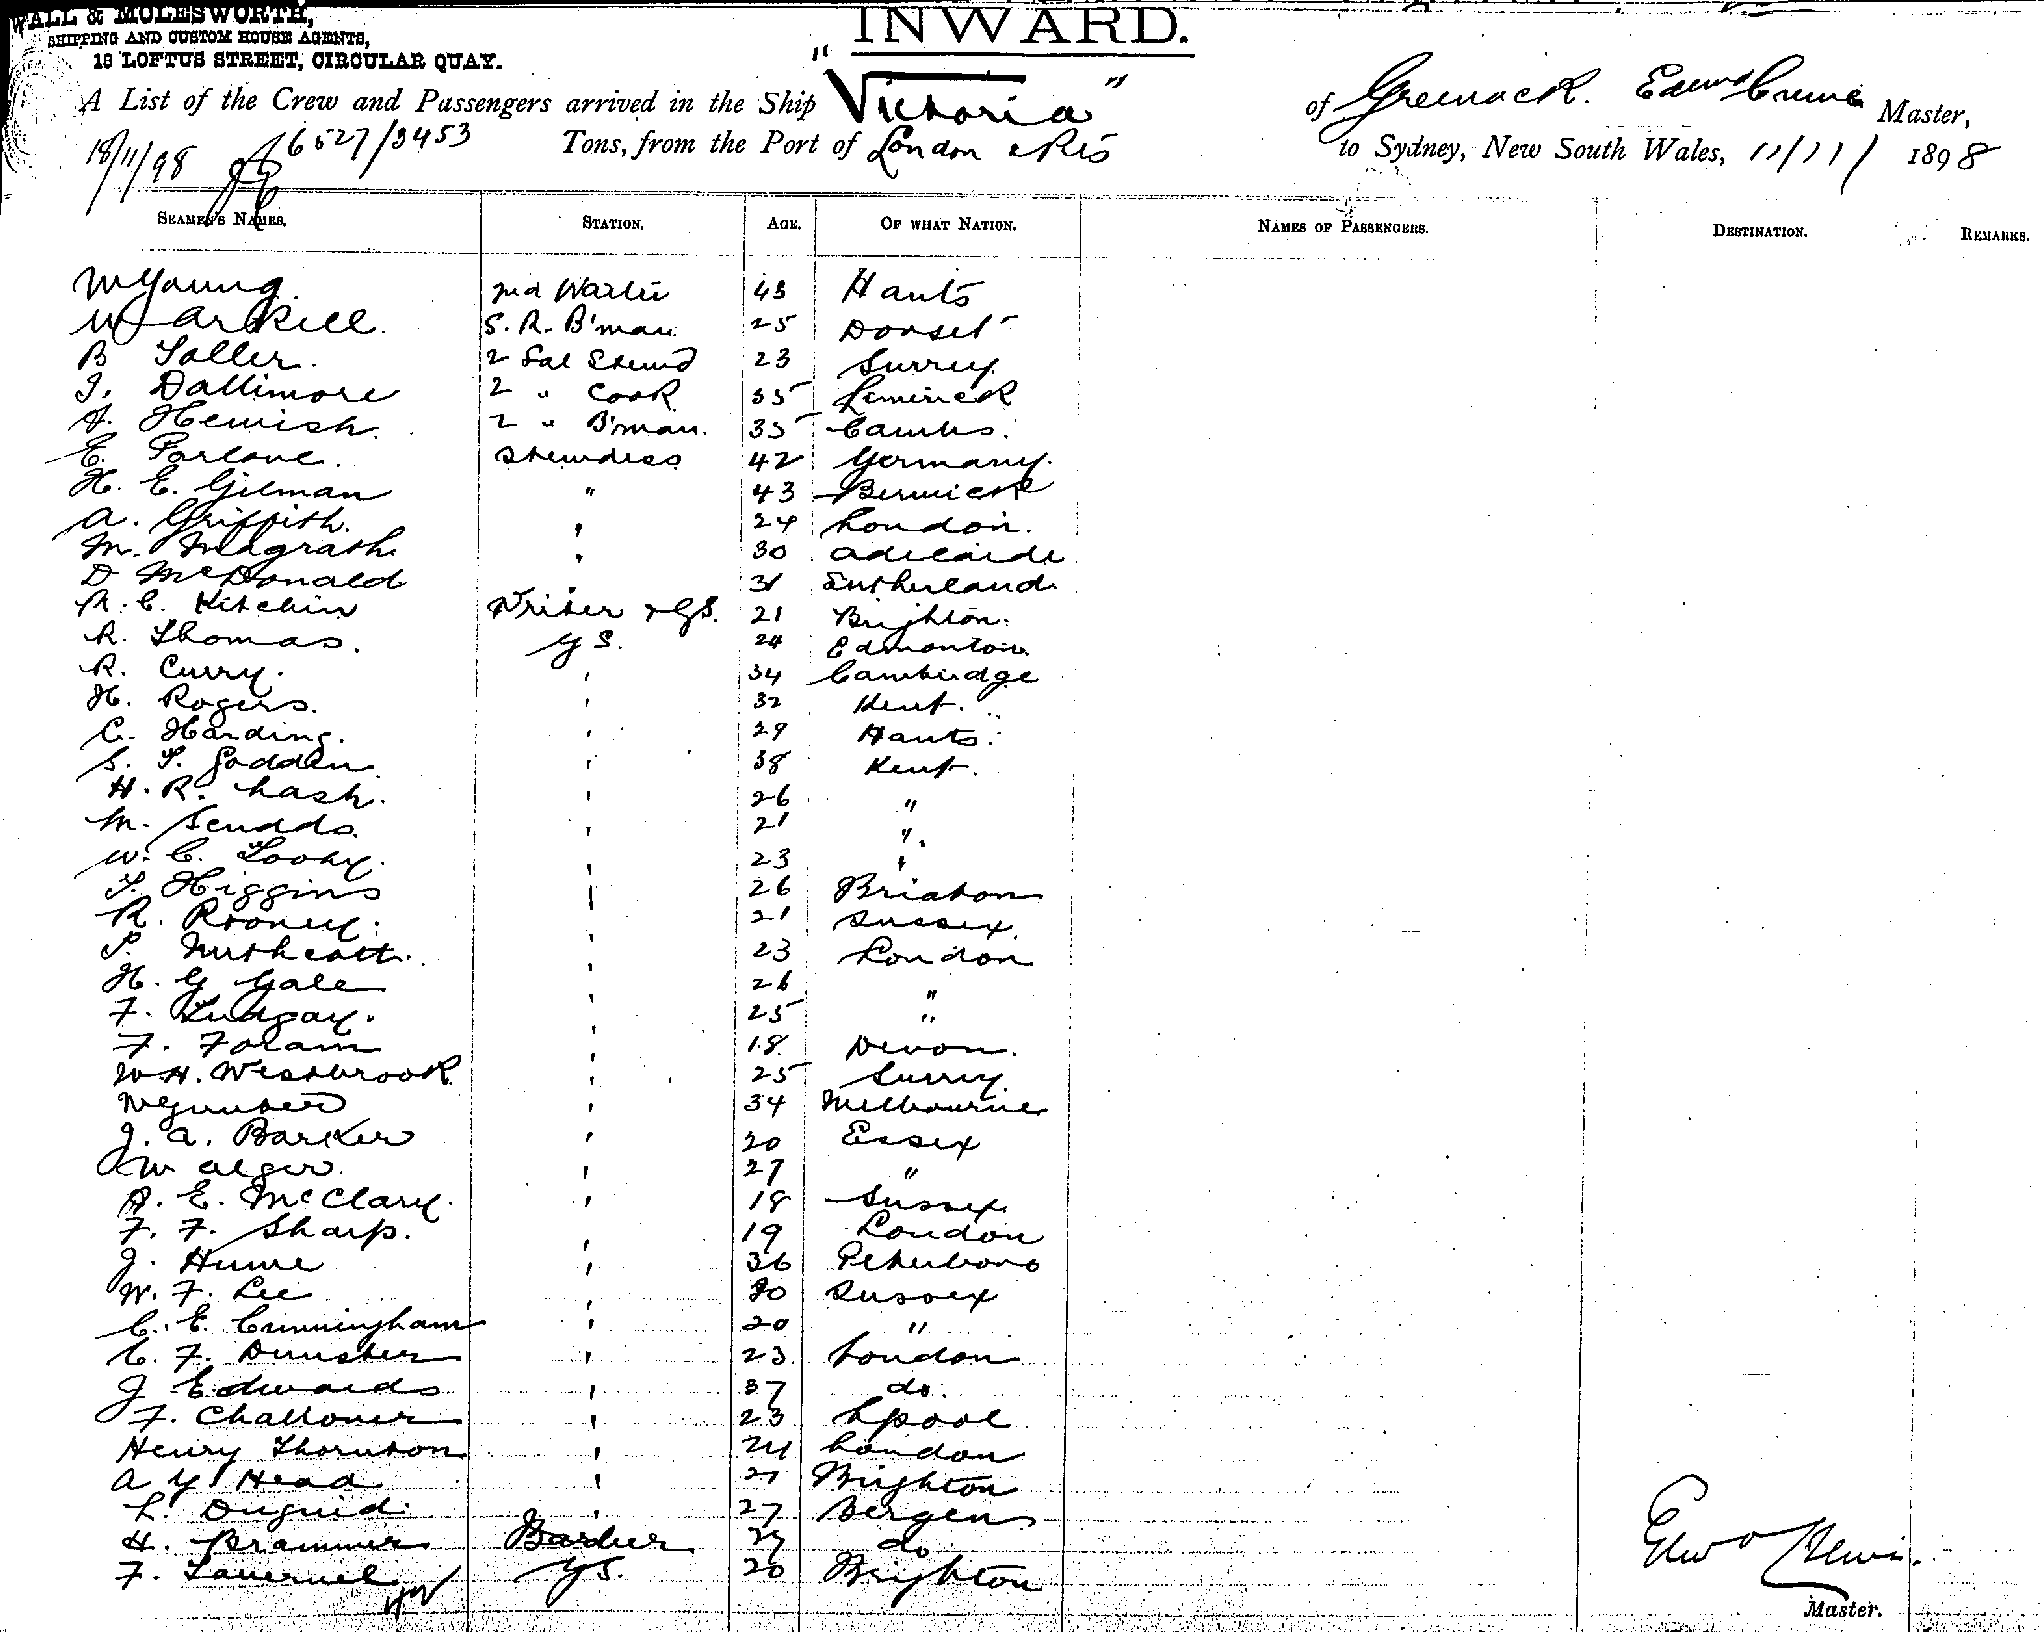 WALL & MOLESWORTH,
SHIPPING AND CUSTOM HOUSE AGENTS,
18 LOFTUS STREET, CIRCULAR QUAY.
INWARD.
A List of the Crew and Passengers arrived in the Ship "Victoria" of Greenock. Master,
18/11/98 6527/3453 Tons, from the Port of London to Sydney, New South Wales, 11/11/1898
SEAMEN'S NAMES. STATION. AGE. OF WHAT NATION. NAMES OF PASSENGERS. DESTINATION. REMARKS.
W Young 43 Hants
W Arkell S. R. B'man 25 Dorset
B Toller 2 Sal Stewd 23 Surrey
J. Dallimore 2 " Cook 35 Limerick
A. Hewish 2 " B'man. 35 Cambs.
E. Parlane Stewdess 42 Germany.
H. E. Gilman " 43 Berwick
A. Griffith. " 24 London.
M. Magrath " 30 Adelaide
D McDonald " 31 Sutherland
R. C. Kitchin Writer & GS. 21 Brighton.
R. Thomas. GS. 24 Edmonton
R. Curry. ' 34 Cambridge
H. Rogers. ' 32 Kent.
C. Harding. ' 29 Hants.
S. T. Godden ' 38 Kent.
H. R. Lash. ' 26 "
M. Scudds. ' 21 "
W. C. Looky. ' 23 "
T. Higgins ' 26 Brixton
R. Rooney. ' 21 Sussex.
S. Northcott. ' 23 London
H. G Gale ' 26 "
F. Ludgay. ' 25 "
F. Foram ' 18 Devon.
W H. Westbrook ' 25 Surrey
W Gunter ' 34 Melbourne
J. A. Barker ' 20 Essex
W Alger. ' 27 "
A. E. McClary. ' 18 Sussex
F. F. Sharp. ' 19 London
J. Hume ' 36 Peterboro
W. F. Lee ' 20 Sussex
C. E. Cunningham ' 20 "
C. F. Dunster ' 23 London
J Edwards ' 37 do.
F. Challoner ' 23 Lpool
Henry Thornton ' 24 London
A G Head ' 21 Brighton
L. Duguid ' 27 Bergen
H. Brammer Barber 27 do
F. GS. 20 Brighton
Master.